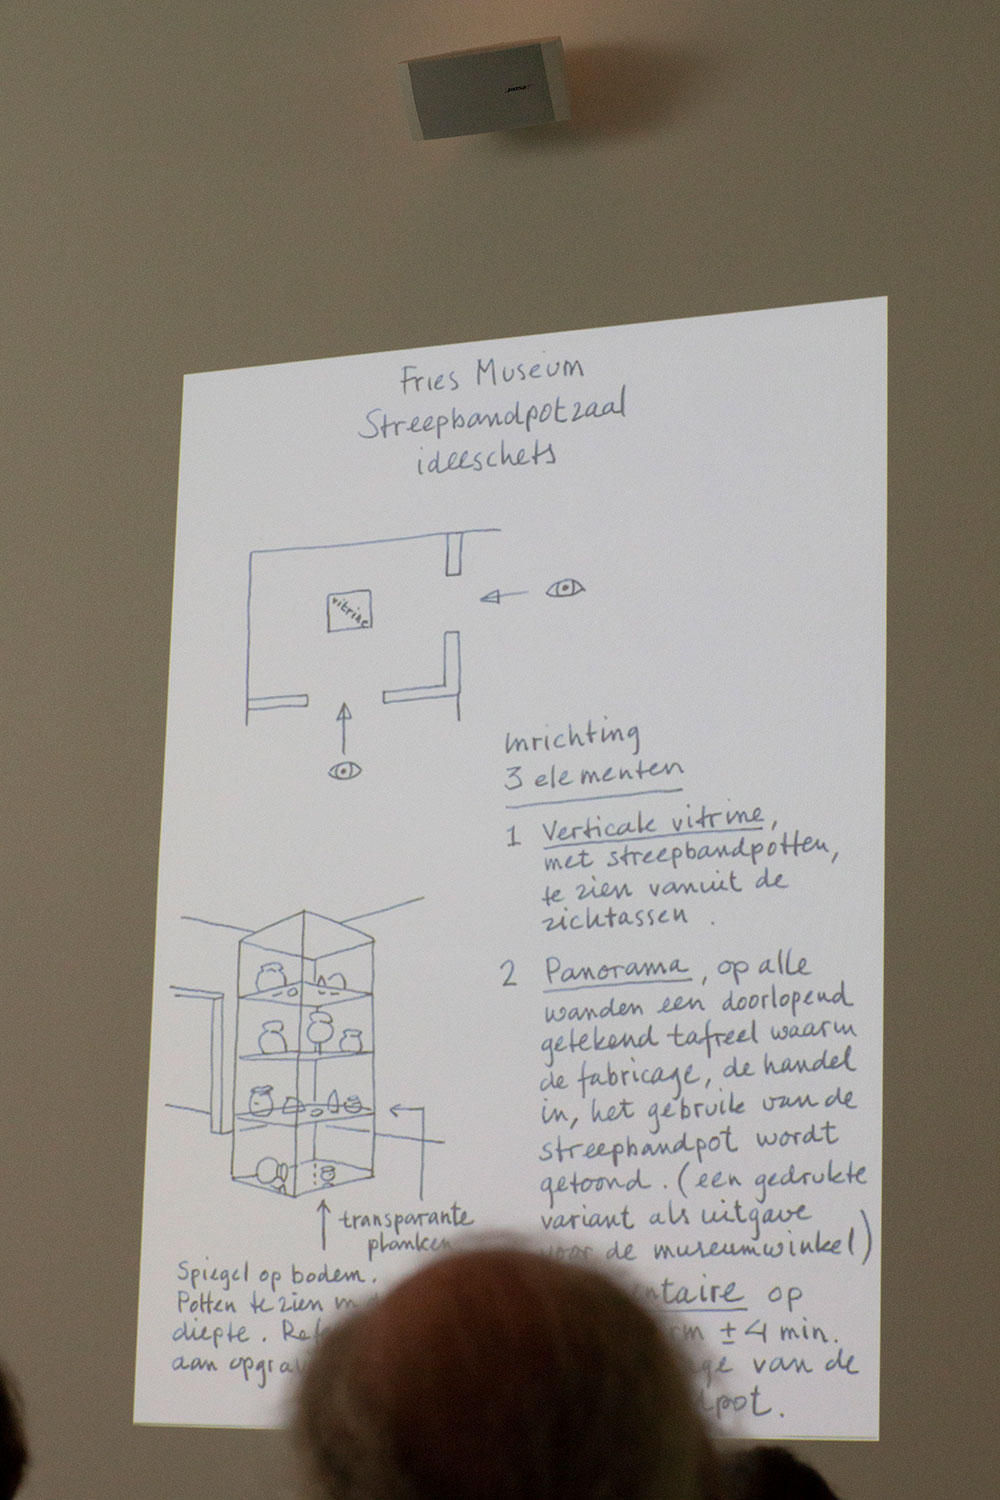 BOSE
Fries Museum
Streepbandpotzaal
ideeschets
vitrine
Inrichting
3 elementen
1 Verticale vitrine,
met streepbandpotten,
te zien vanuit de
zichtassen.
2 Panorama, op alle
wanden een doorlopend
getekend tafreel waarin
de fabricage, de handel
in, het gebruik van de
streepbandpot wordt
getoond. (een gedrukte
variant als uitgave
voor de museumwinkel)
op
± 4 min.
van de
transparante
planken
Spiegel op bodem.
Potten te zien
diepte.
aan